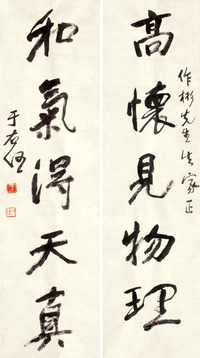 高懷見物理
作彬先生法家正
和氣得天真
于右任